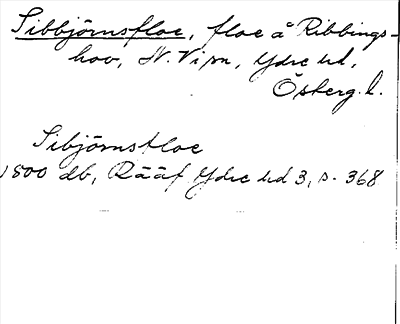 Sibbjörnsfloe, floe å Ribbings-
hov, N. Vi sn, Ydre hd,
Österg. l.
Sibjörnsfloe
1500 db, Rääf Ydre hd 3, s. 368